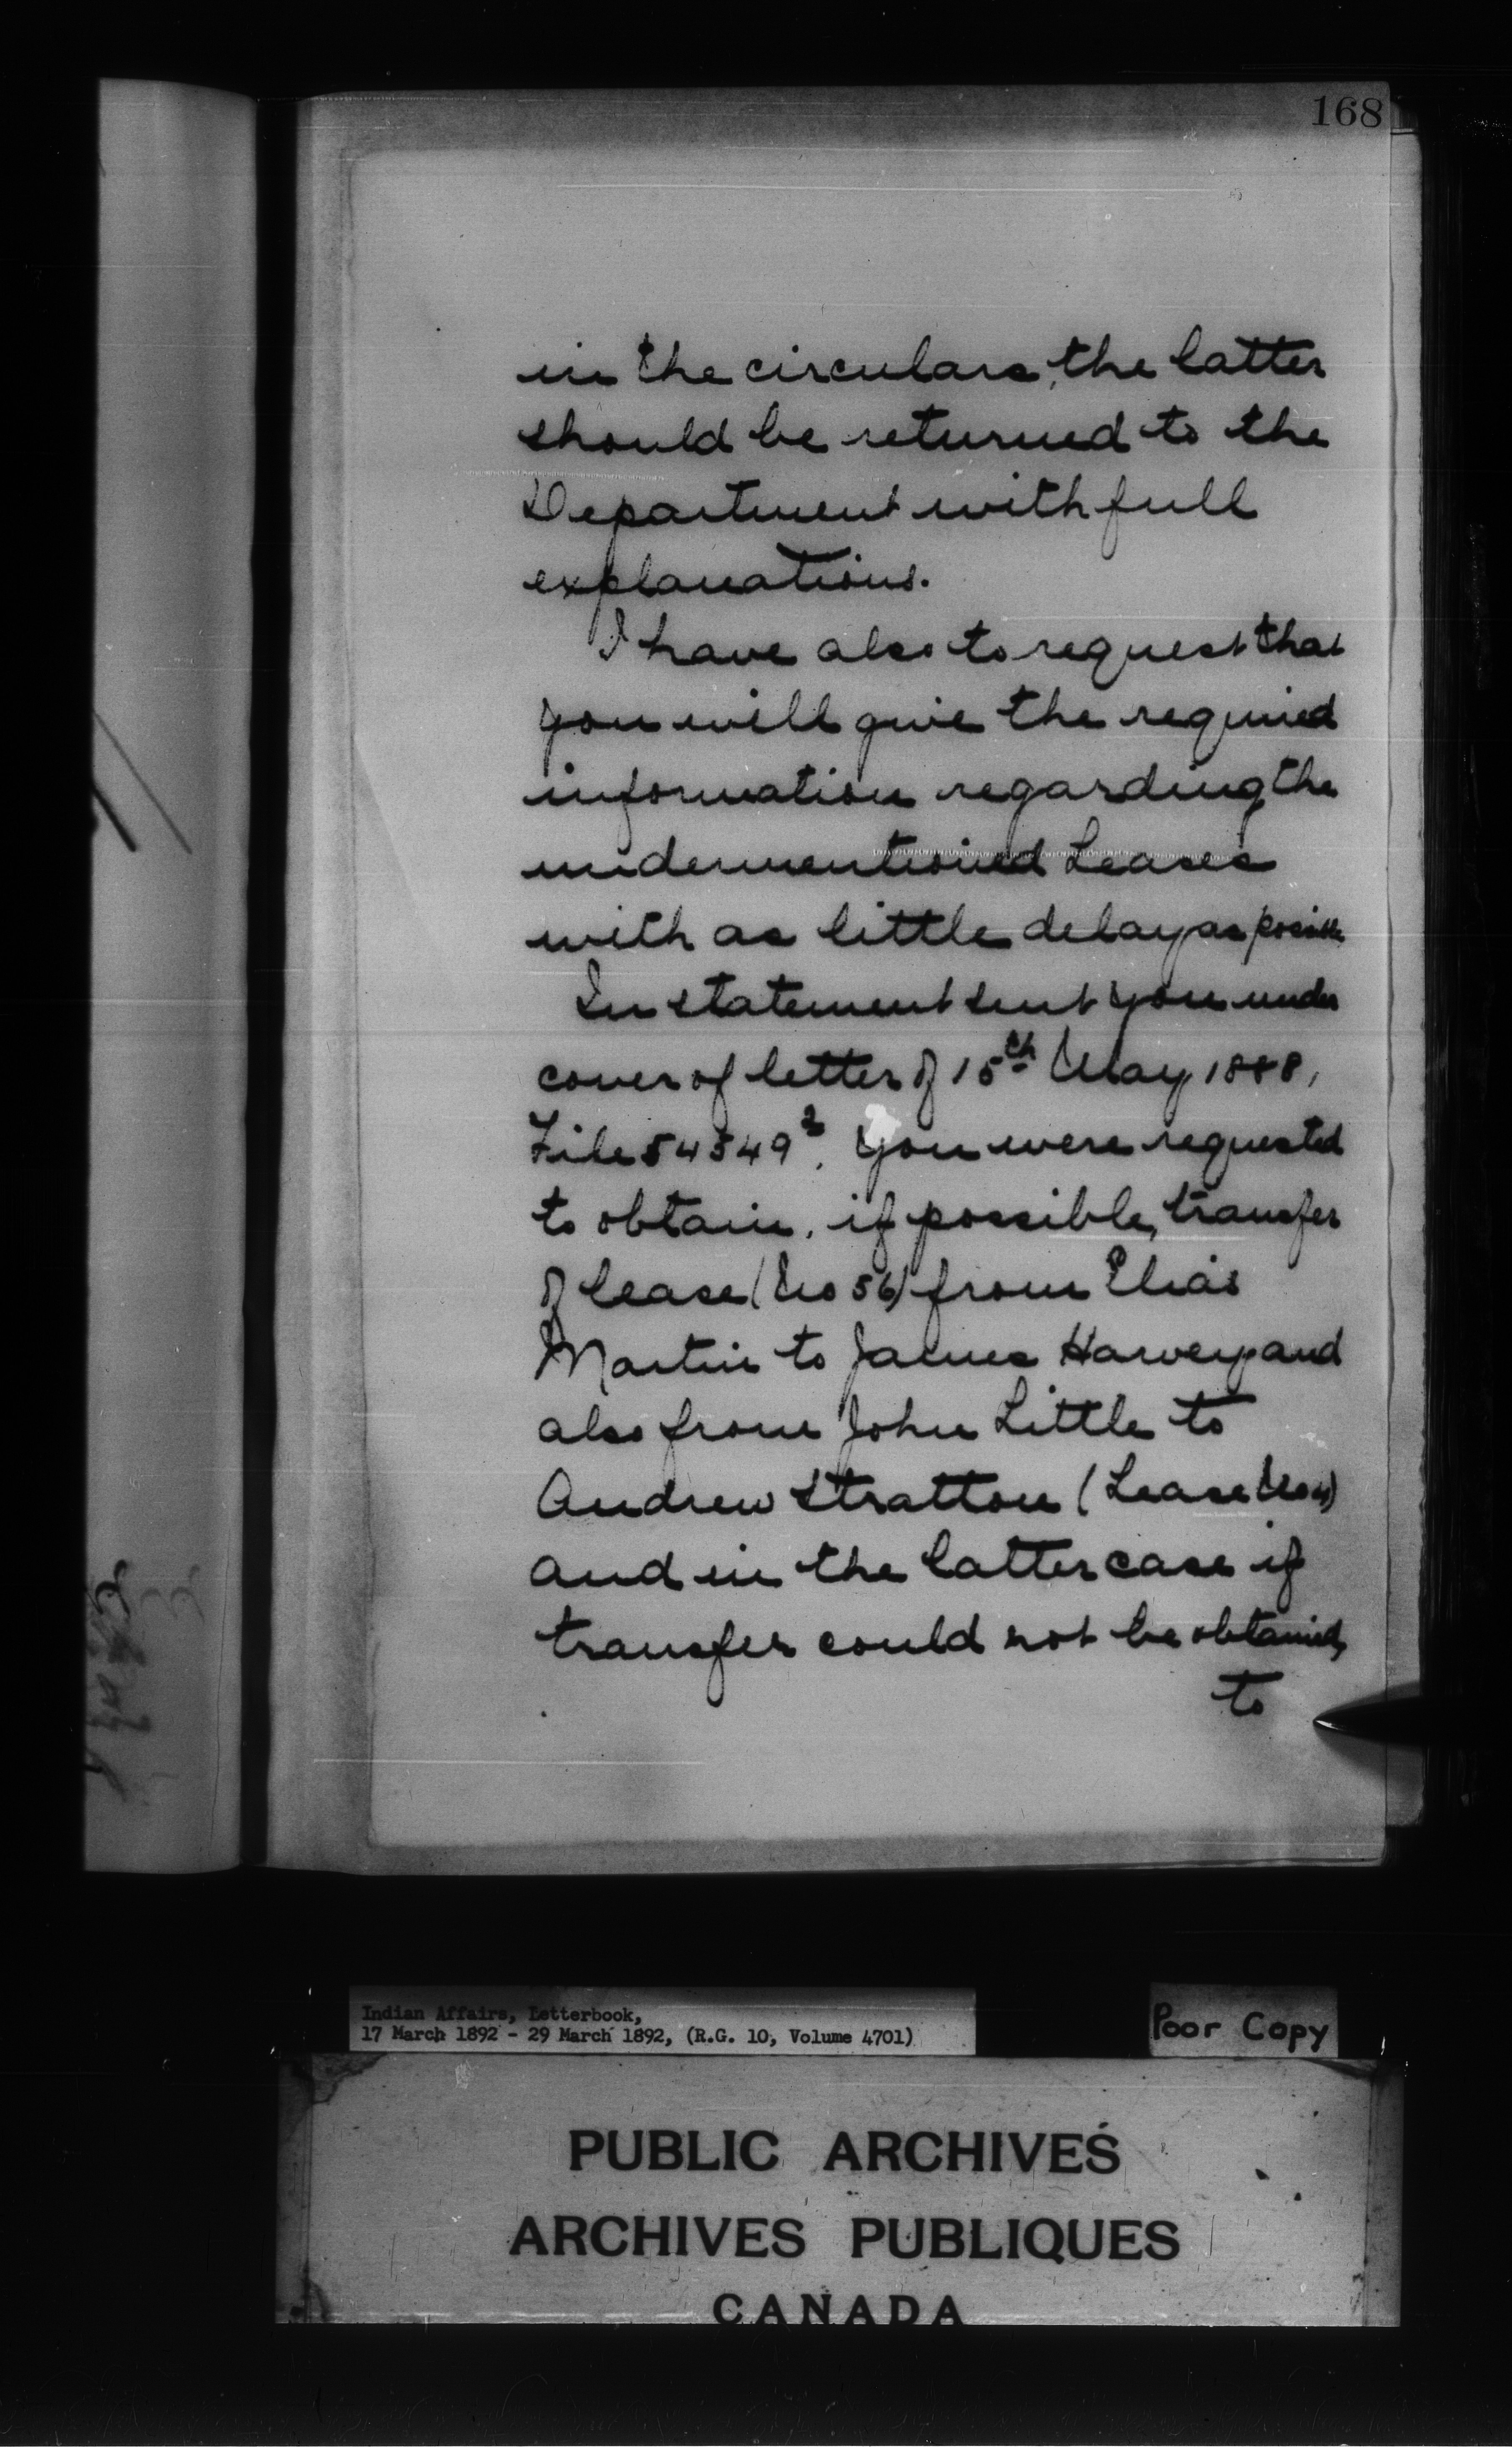 168
in the circulars, the latter
should be returned to the
Department with full
explanations.
I have also to request that
you will give the required
information regarding the
undermentioned Leases
with as little delay as possible
In statement sent you under
cover of letter of 15th May 1888,
File 54549², you were requested
to obtain, if possible, transfer
of lease (No 56) from Elias
Martin to James Harvey and
also from John Little to
Andrew Stratton (Lease No
and in the latter case if
transfer could not be obtained,
to
Indian Affairs, Letterbook,
17 March 1892 - 29 March 1892, (R.G. 10, Volume 4701)
Poor Copy
PUBLIC ARCHIVES
ARCHIVES PUBLIQUES
CANADA